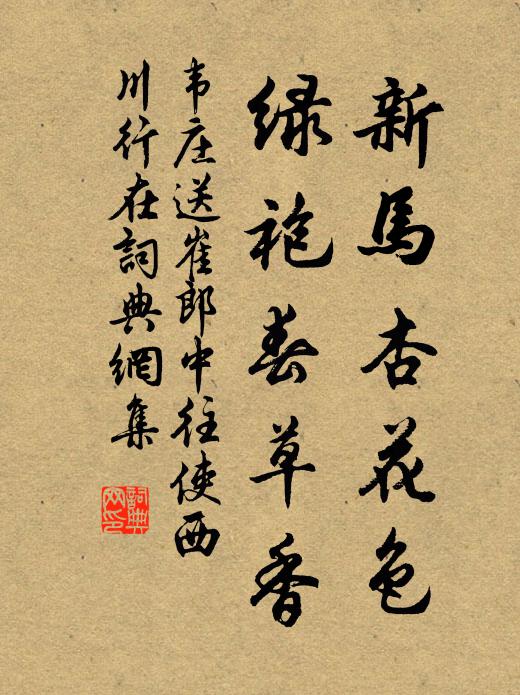 新馬杏花色
绿袍春草香
韦庄送崔郎中往使西
川行在詞典網集
詞典网印